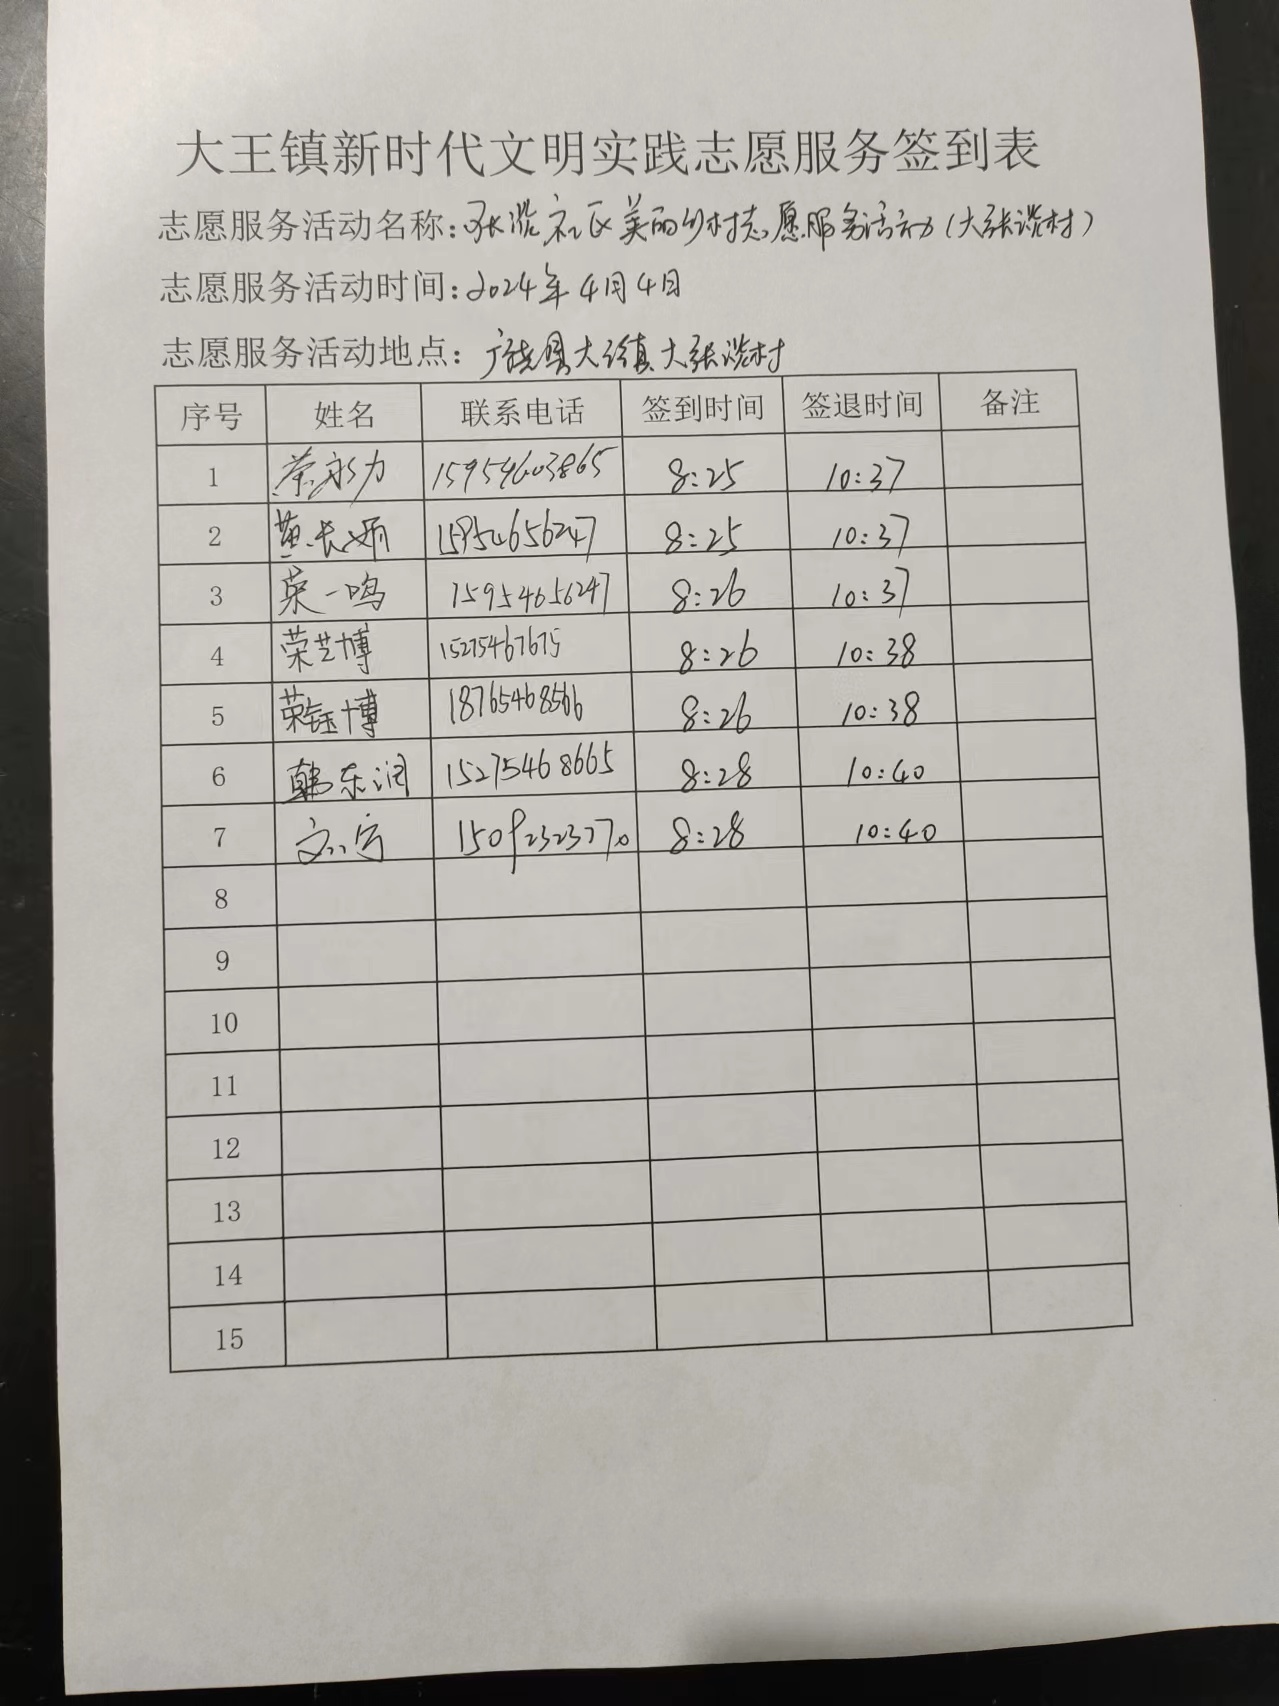 大王镇新时代文明实践志愿服务签到表
志愿服务活动名称:张淡社区美丽乡村志愿服务活动(大张淡村)
志愿服务活动时间:2024年4月4日
志愿服务活动地点:广饶县大王镇大张淡村
序号 姓名 联系电话 签到时间 签退时间 备注
1 荣永力 15954603865 8:25 10:37
2 黄长娟 15954656247 8:25 10:37
3 荣一鸣 15954656247 8:26 10:37
4 荣艺博 15275467675 8:26 10:38
5 荣钰博 18765468566 8:26 10:38
6 韩东润 15275468665 8:28 10:40
7 8:28 10:40
8
9
10
11
12
13
14
15